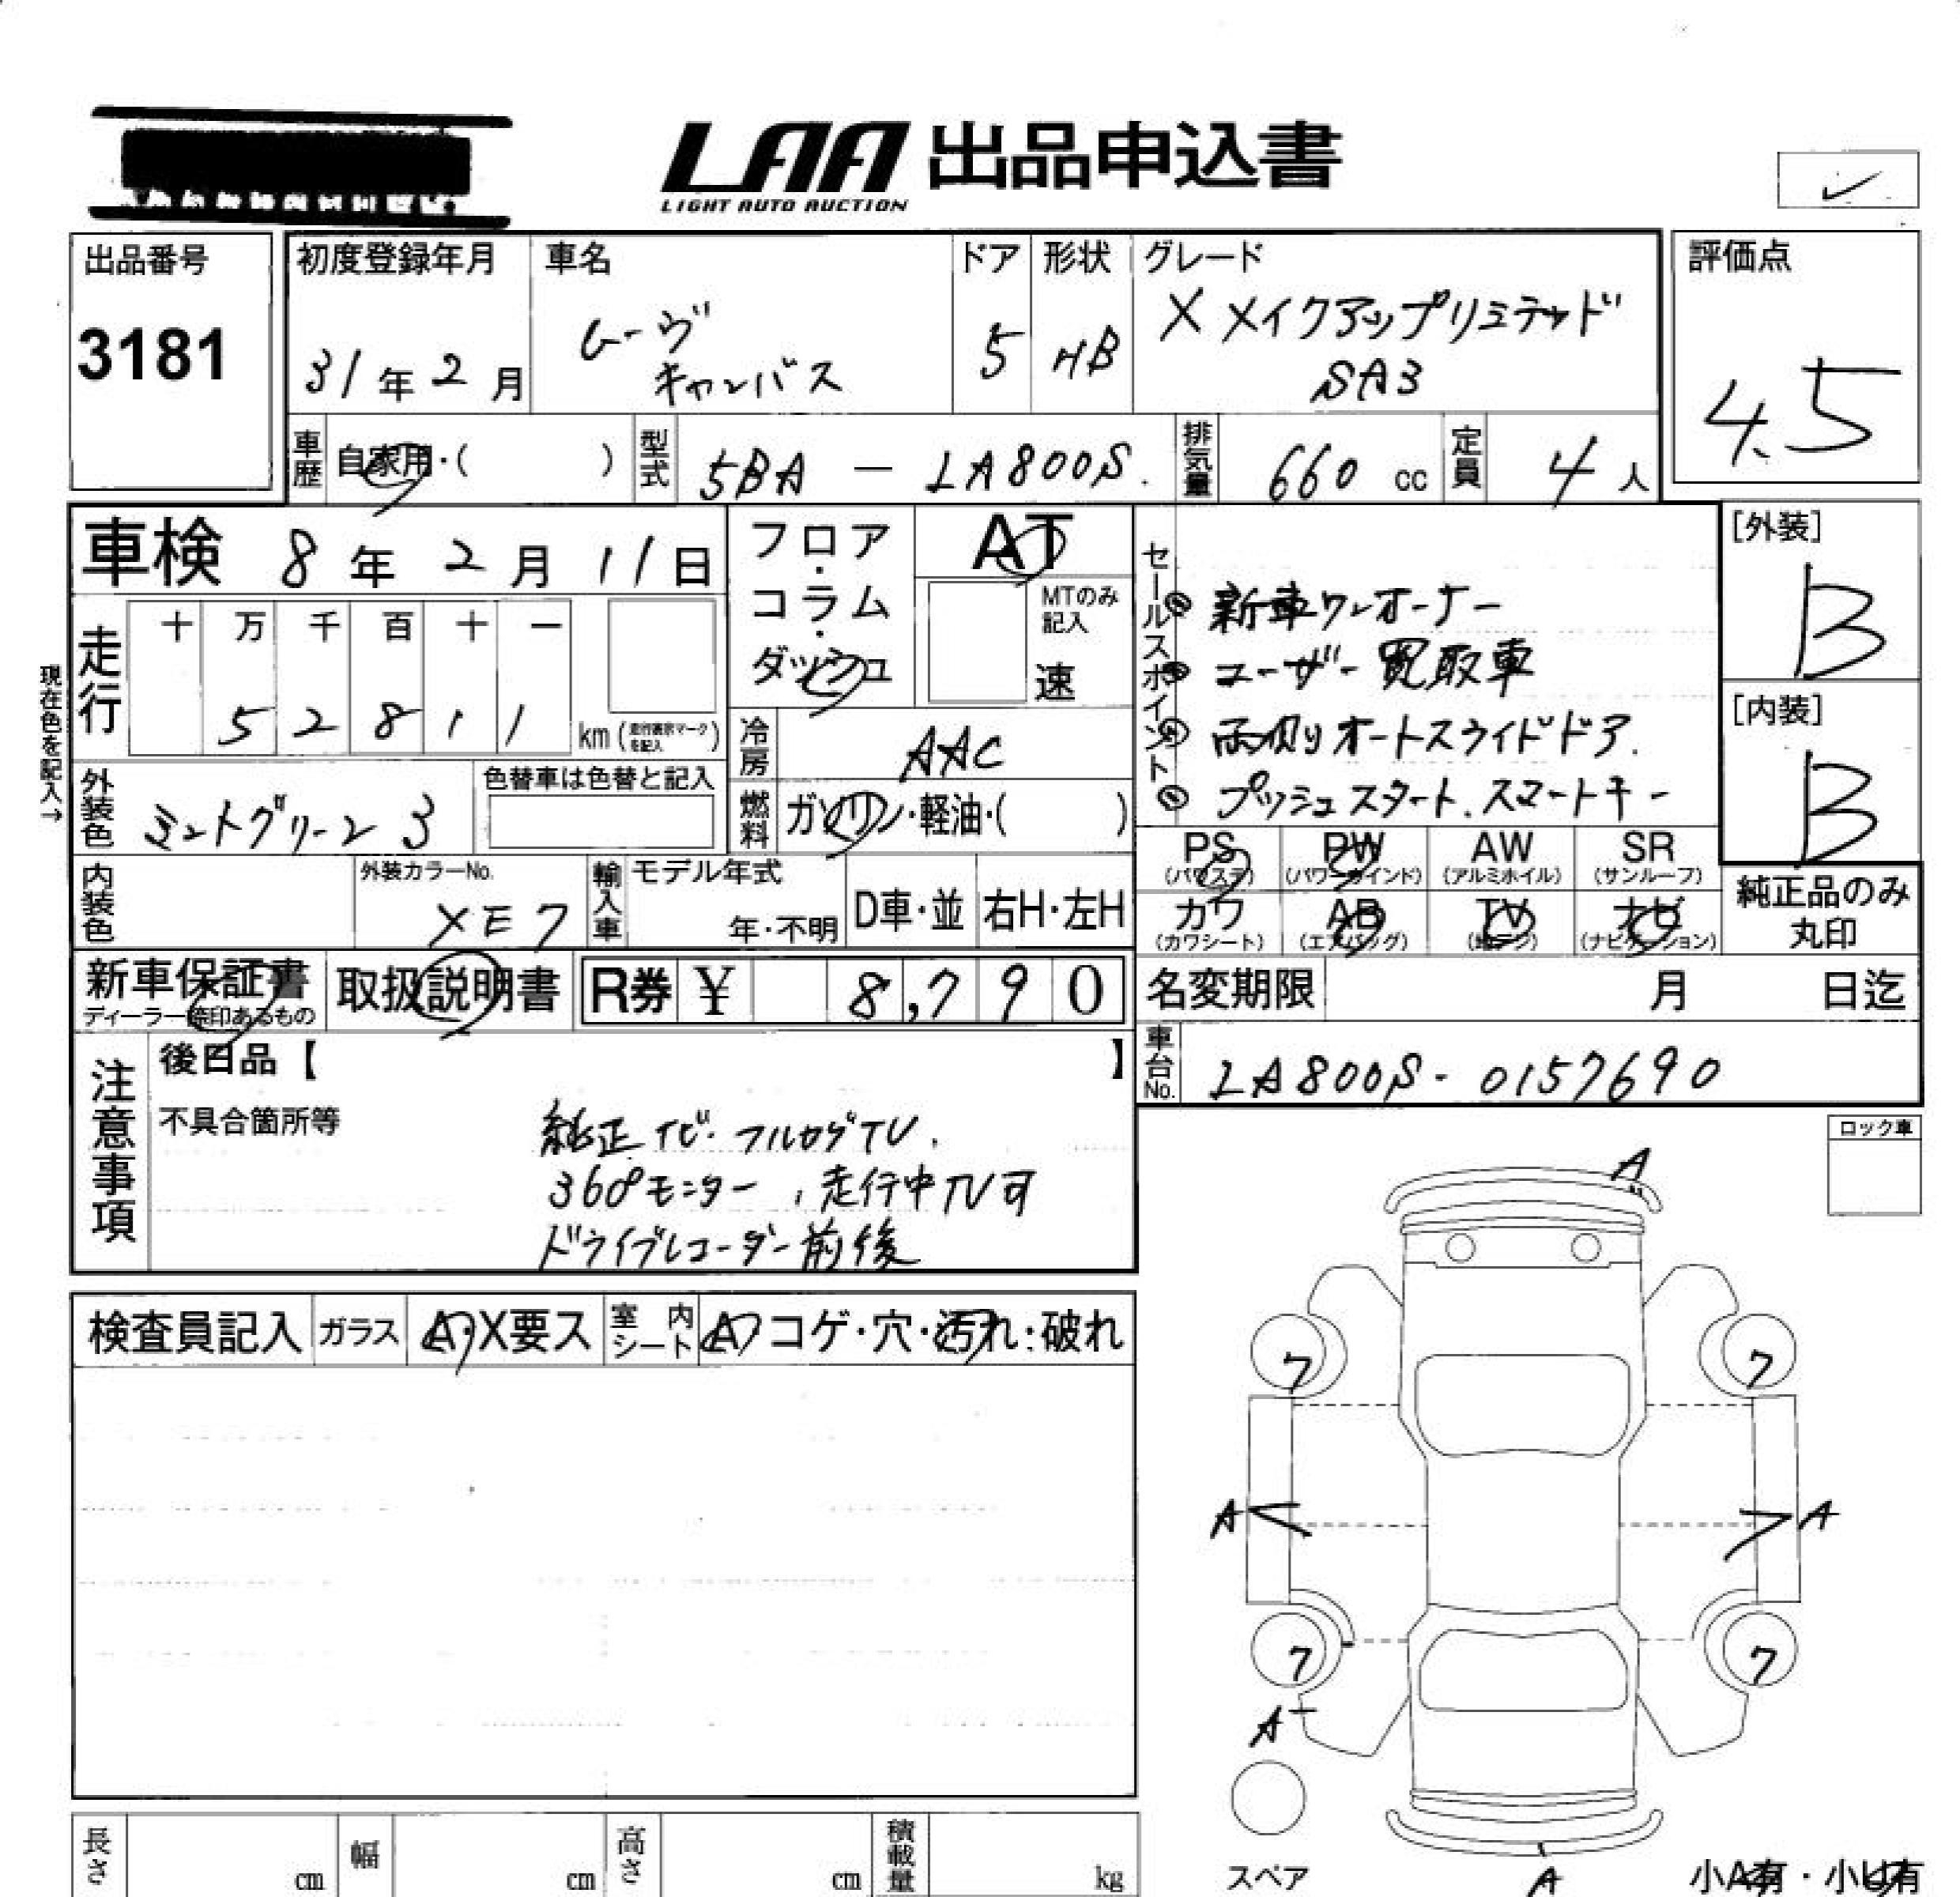 LAA 出品申込書
LIGHT AUTO AUCTION
✓
出品番号
3181
初度登録年月
31年2月
車名
ムーヴ
キャンバス
ドア
5
形状
HB
グレード
X メイクアップリミテッド
SA3
評価点
4.5
車歴
自家用・( )
型式
5BA - LA800S.
排気量
660 cc
定員
4人
車検 8年2月11日
フロア・コラム・ダッシュ
AT
MTのみ記入
速
セールスポイント
◎ 新車ワンオーナー
◎ ユーザー買取車
◎ 両側オートスライドドア.
◎ プッシュスタート.スマートキー
[外装]
B
[内装]
B
現在色を記入→
走行
十 万 千 百 十 一
5 2 8 1 1 km (走行表示マークを記入)
冷房
AAC
外装色
ミントグリーン3
色替車は色替と記入
燃料
ガソリン・軽油・( )
PS (パワステ)
PW (パワーウインド)
AW (アルミホイル)
SR (サンルーフ)
カワ (カワシート)
AB (エアバッグ)
TV (地デジ)
ナビ (ナビゲーション)
純正品のみ
丸印
内装色
外装カラーNo.
XE7
輸入車
モデル年式
年・不明
D車・並
右H・左H
新車保証書
ディーラー捺印あるもの
取扱説明書
R券 ¥ 8,790
名変期限 月 日迄
車台No.
LA800S-0157690
注意事項
後日品【 】
不具合箇所等
純正ナビ・フルセグTV.
360°モニター,走行中TV可
ドライブレコーダー前後
ロック車
検査員記入
ガラス
A・X要ス
室内シート
A・コゲ・穴・汚れ・破れ
A
7 7
A A
7 7
A
スペア
A
小A有・小U有
長さ cm
幅 cm
高さ cm
積載量 kg